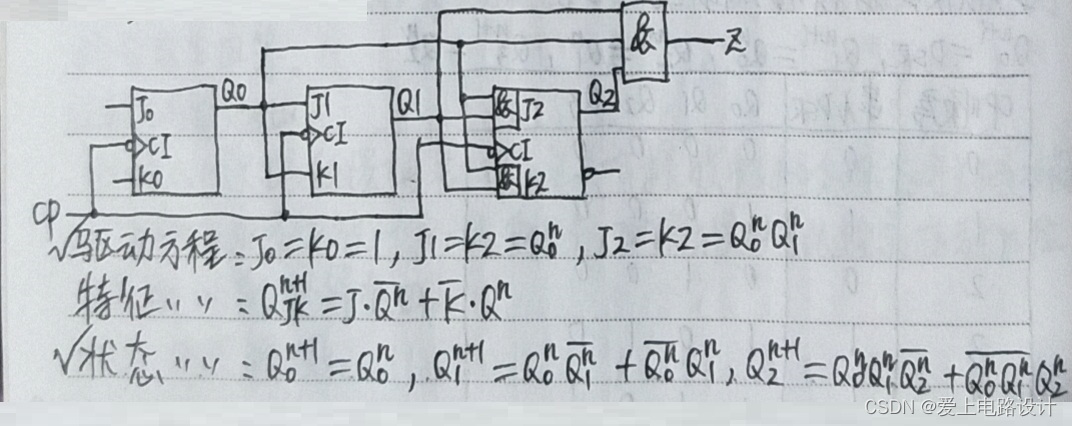 Q0 Q1 Q2 & Z
J0 J1 & J2
CI CI CI
K0 K1 & K2
CP
√驱动方程:J0=K0=1, J1=K2=Q₀ⁿ, J2=K2=Q₀ⁿQ₁ⁿ
特征〃〃:Q_JKⁿ⁺¹=J·Q̅ⁿ+K̅·Qⁿ
√状态〃〃:Q₀ⁿ⁺¹=Q₀ⁿ, Q₁ⁿ⁺¹=Q₀ⁿQ̅₁ⁿ+Q̅₀ⁿQ₁ⁿ, Q₂ⁿ⁺¹=Q₀ⁿQ₁ⁿQ̅₂ⁿ+\overline{Q₀ⁿQ₁ⁿ}Q₂ⁿ
CSDN @爱上电路设计